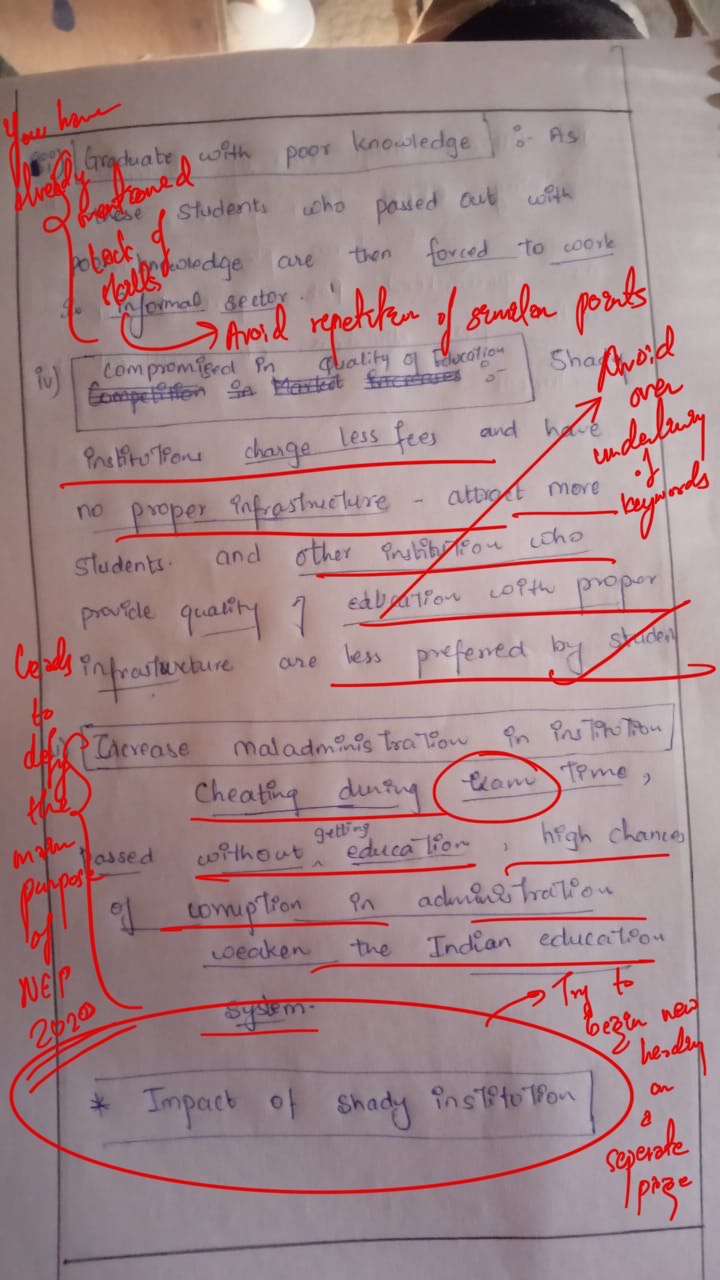 You have
already mentioned
Lack of
skills
Graduate with poor knowledge :- As
these students who passed out with
poor knowledge are then forced to work
informal sector.
→ Avoid repetition of similar points
iv) Compromised in quality of Education
Competition in Market Increases :- Shady
institutions charge less fees and have
no proper infrastructure - attract more
students. and other institution who
provide quality of education with proper
infrasturxture are less preferred by student
Avoid
over
underlining
of
keywords
Increase maladministration in institution
Cheating during exam time,
passed without getting education, high chances
of corruption in administration
weaken the Indian education
system.
Leads
to
defy
the
main
purpose
of
NEP
2020
* Impact of shady institution
→ Try to
begin new
heading
on
a
seperate
page